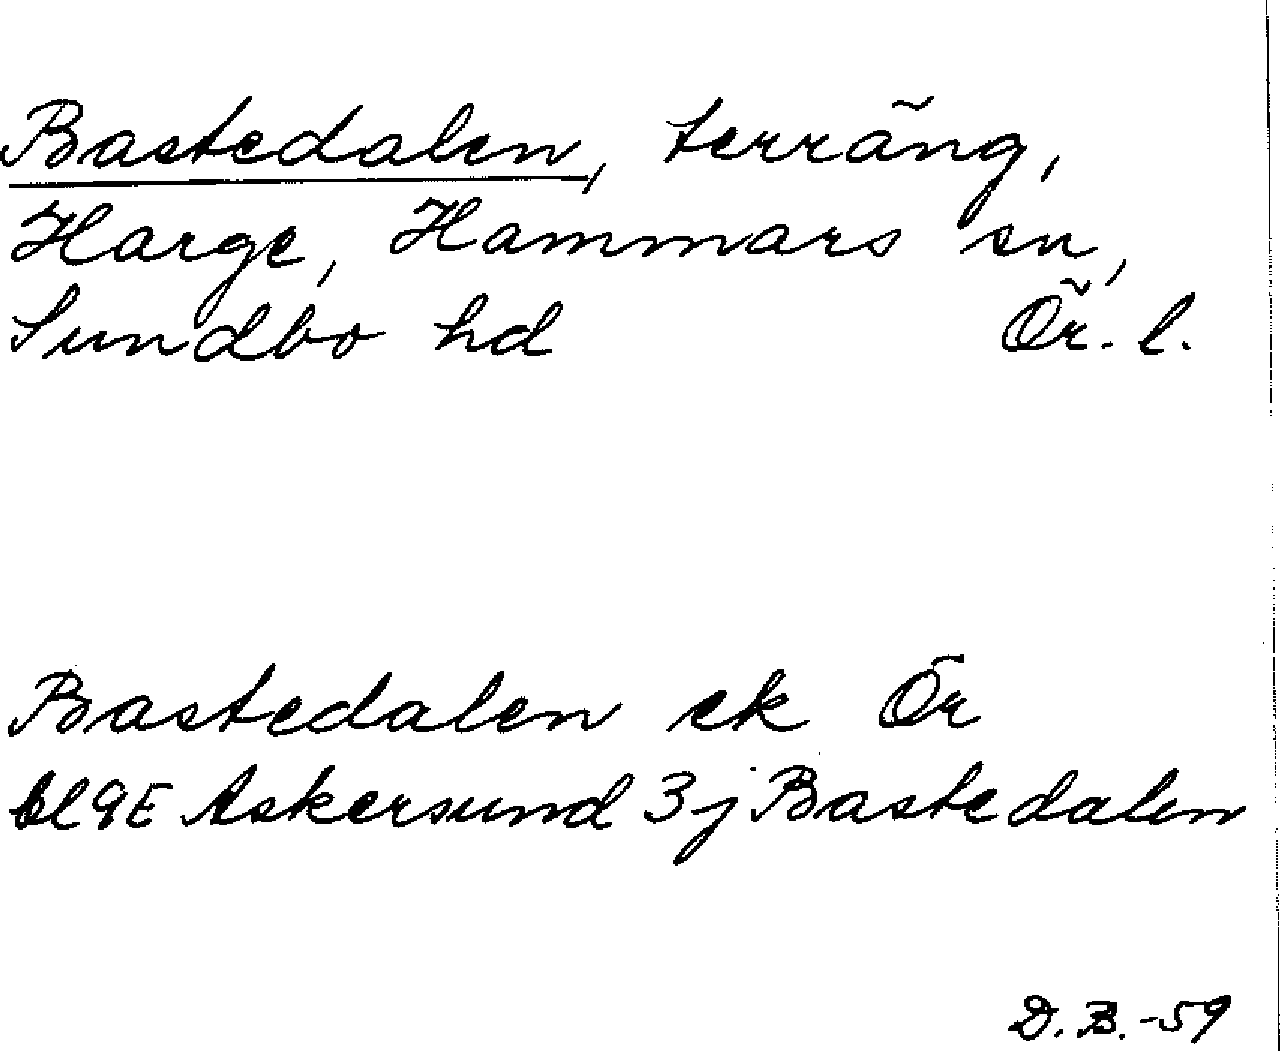 Bastedalen, terräng,
Harge, Hammars sn,
Sundbo hd Ör. l.
Bastedalen ek Ör
Bl 9E Askersund 3j Bastedalen
D.B.-59